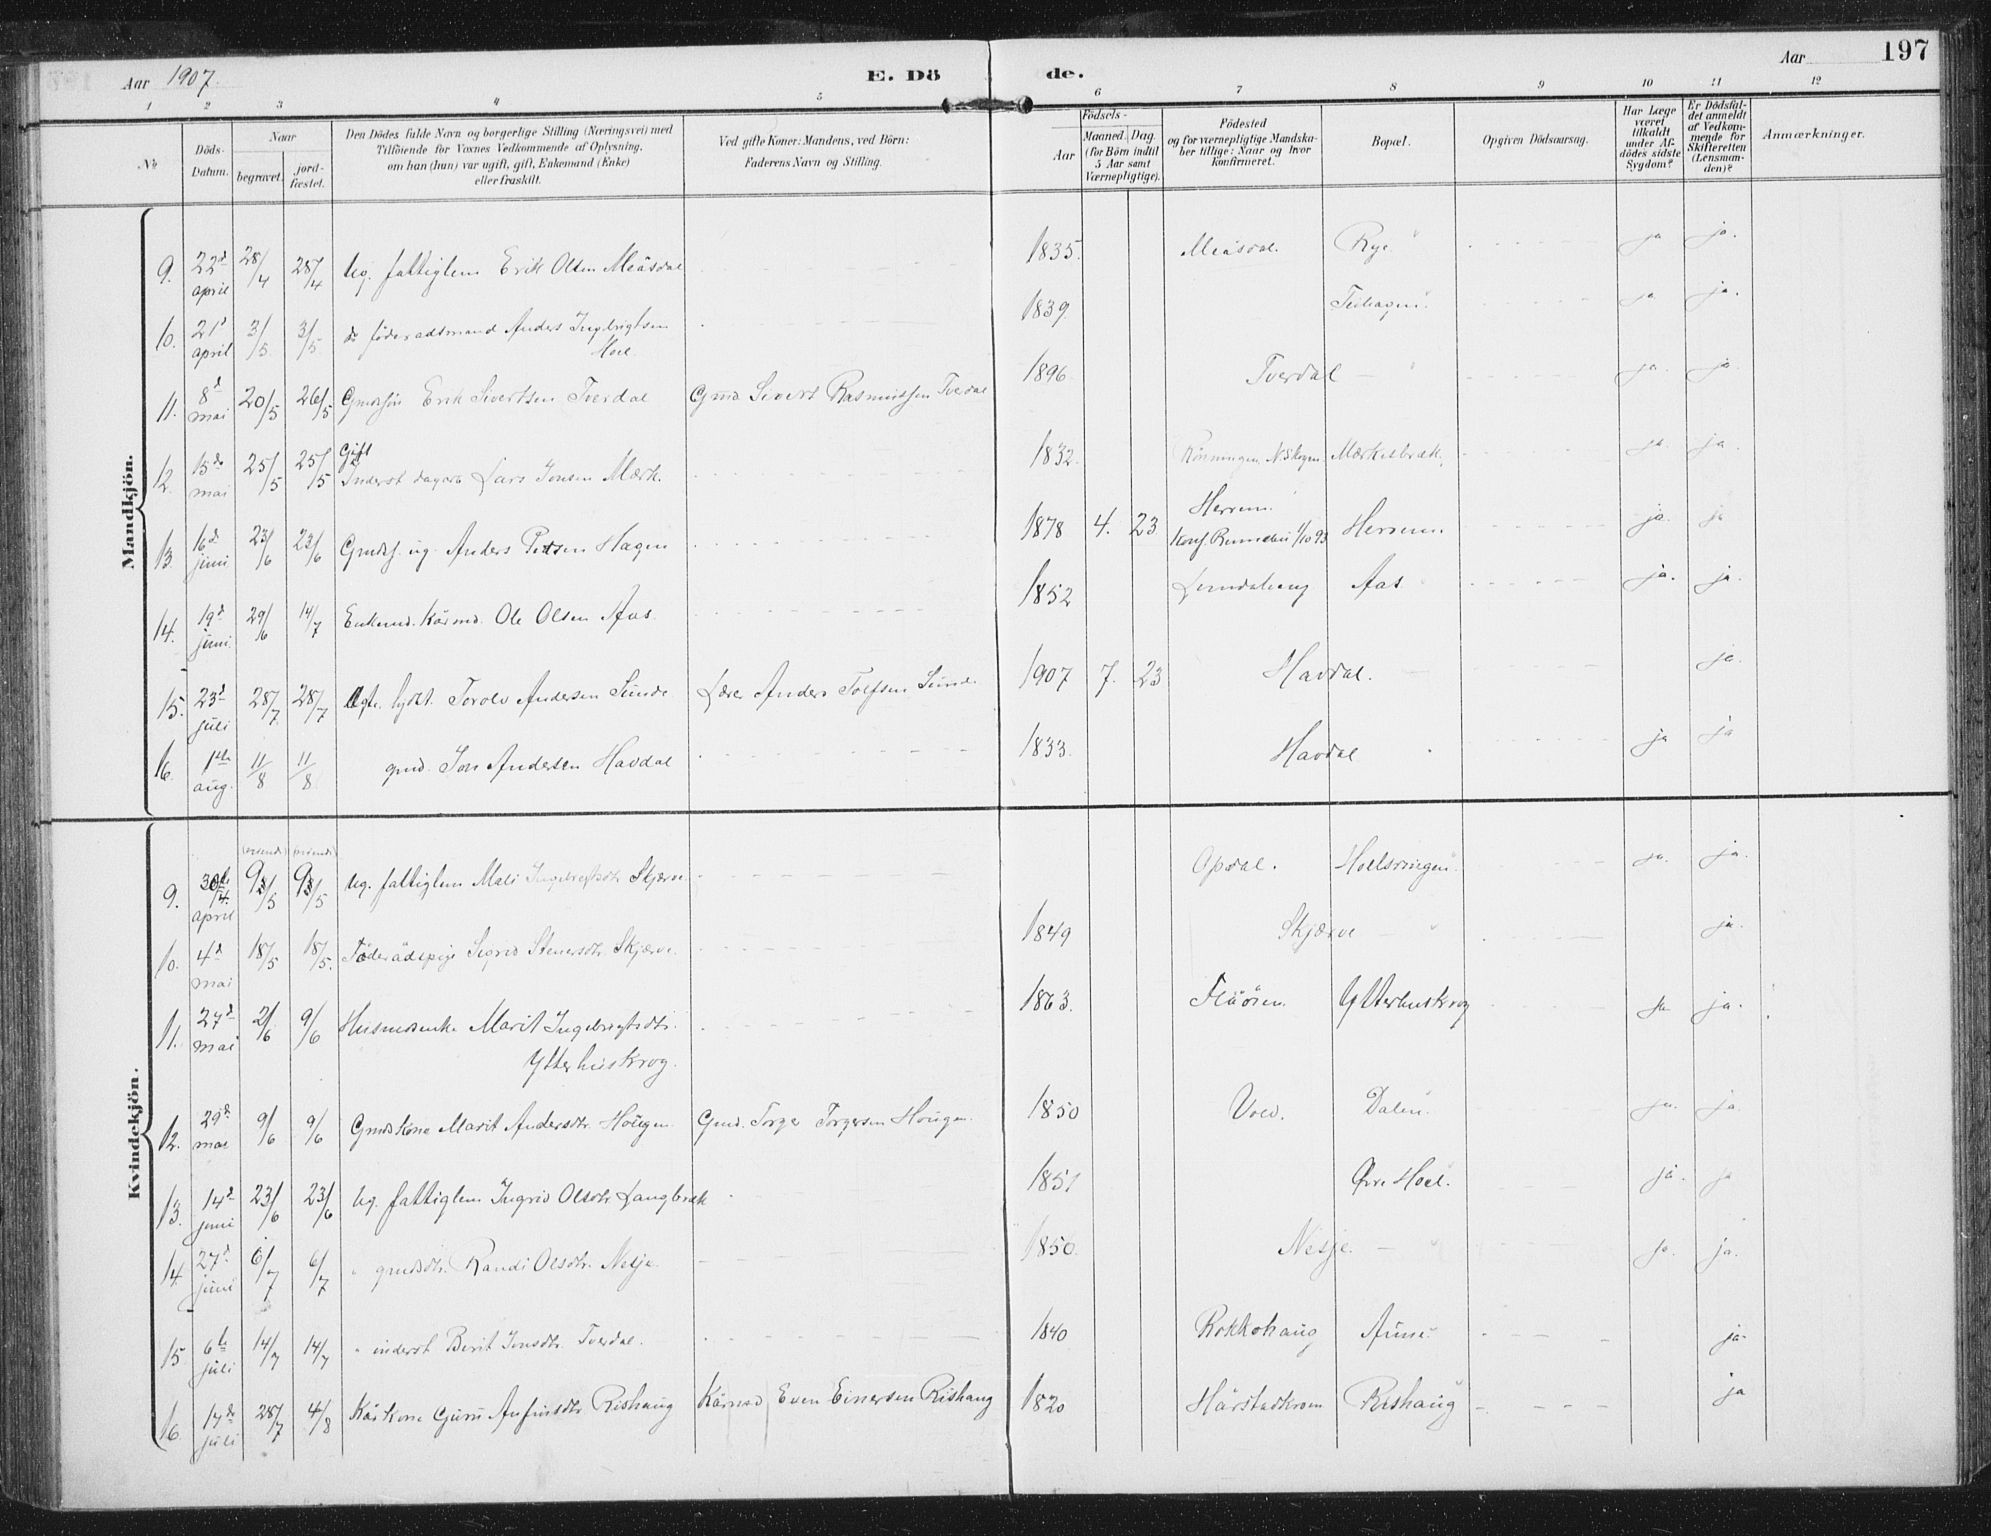 Aar 1907. E. Dö de. Aar 197
1 2 3 4 5 6 7 8 9 10 11 12
No
Döds-Datum.
Naar
begravet.
jord-fæstet.
Den Dödes fulde Navn og borgerlige Stilling (Næringsvei) med
Tilföiende for Voxnes Vedkommende af Oplysning,
om han (hun) var ugift, gift, Enkemand (Enke)
eller fraskilt.
Ved gifte Koner: Mandens, ved Börn:
Faderens Navn og Stilling.
Födsels-
Aar
Maaned. Dag.
(for Börn indtil
5 Aar samt
Værnepligtige).
Födested
og for værnepligtige Mandska-
ber tillige: Naar og hvor
konfirmeret.
Bopæl.
Opgiven Dödsaarsag.
Har Læge
været
tilkaldt
under Af-
dödes sidste
Sygdom?
Er Dödsfal-
det anmeldt
af Vedkom-
mende for
Skifteretten
(Lensman-
den)?
Anmærkninger.
Mandkjön.
9. 22d april 28/4 28/4 Ug. fattiglem Erik Olsen Meåsdal 1835. Meåsdal. Rye ja ja.
10. 21d april 3/5 3/5 do föderaadsmand Anders Ingebrigtsen
Hoel. 1839. ja ja.
11. 8d mai 20/5 26/5 Gmdsön Erik Sivertsen Tverdal Gmd Sivert Rasmussen Tverdal 1896. Tverdal — " ja. ja
12. 15de mai 25/5 25/5 Gift
Inderst Lars Jonsen Mærk. 1832. Rönningen, N Skogn Mærkesbræk. ja. ja.
13. 16d juni 23/6 23/6 Gmds. ug. Anders Petsen Hagen 1878 4. 23 Herrem.
Konf. Rennebu 1/10 93 Herrem. ja. ja
14. 19d juni 29/6 14/7 Enkemd. Kårmd. Ole Olsen Aas. 1852 Aas ja. ja.
15. 23d juli 28/7 28/7 Ægte. Torolv Andersen Sunde Lærer Anders Tolfsen Sunde 1907 7. 23 Havdal. — ja.
16. 1ste aug. 11/8 11/8 gmd. Jon Andersen Havdal 1833. Havdal " ja ja
Kvindekjön.
9. 30te april 9/5 9/5 Ug. fattiglem Mali Ingebrigtsdtr Skjærve Opdal. ja. ja.
10. 4d mai 18/5 18/5. Föderådspige Sigrid Steinersdtr. Skjærve. 1849 Skjærve — " ja.
11. 27d mai 2/6 9/6 Husmdsenke Marit Ingebrigtsdtr.
Ytterhuskrog. 1863. Ytterhuskrog ja ja.
12. 29d mai 9/6 9/6 Gmdskone Marit Andersdtr. Hougen. Gmd. Torger Torgersen Hougen. 1850 Vold. Dalen. ja. ja
13. 14d juni 23/6 23/6 Ug. fattiglem Ingrid Olsdtr Langbræk 1851 Övre Hoel. ja. ja
14. 27d juni 6/7 6/7 " gmdsdtr. Randi Olsdtr. Nesje. 1850. Nesje. — " ja. ja.
15. 6te juli 14/7 14/7 " inderst Berit Jonsdtr. Tverdal. 1840 Rokkohaug Aune ja.
16. 17de juli 28/7 4/8 Kårkone Guru Anfinsdtr Rishaug Kårmd Even Einersen Rishaug 1820 Hårstadkroen Rishaug ja